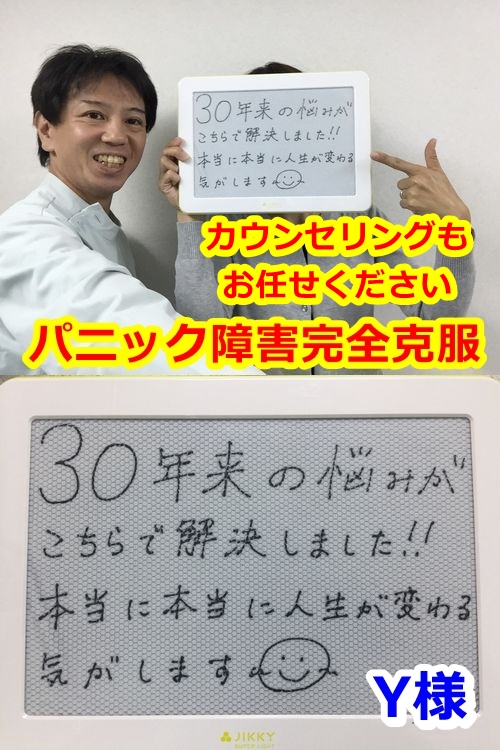 30年来の悩みが
こちらで解決しました!!
本当に本当に人生が変わる
気がします
JIKKY
カウンセリングも
お任せください
パニック障害完全克服
30年来の悩みが
こちらで解決しました!!
本当に本当に人生が変わる
気がします
Y様
JIKKY
SUPER LIGHT